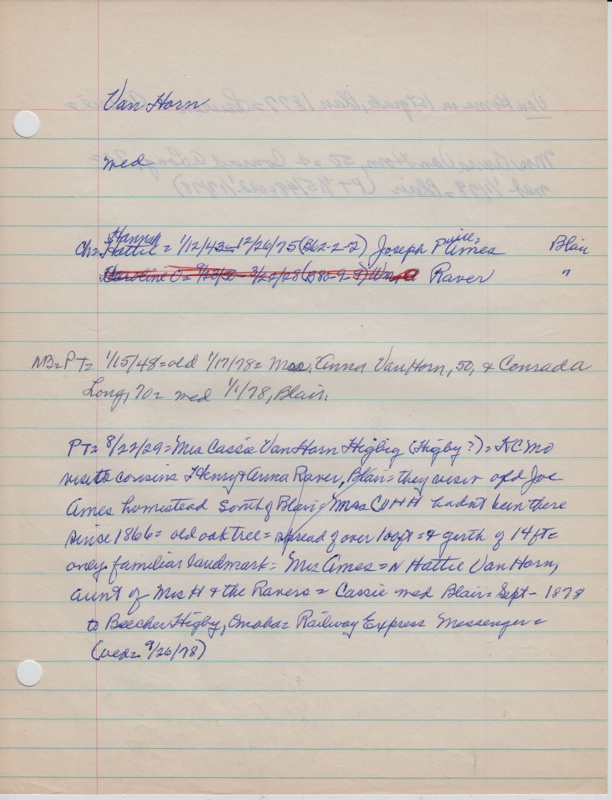 Van Horn
med
Hannah wife=
Ch= Hattie = 1/12/43-12/26/75 (B62-2-2) Joseph P Ames Blair
Caroline C= Raver "
NB=PT= 1/15/48=old 1/17/78= Mrs. Anna Van Horn, 50, & Conrad a
Long, 70= med 1/1/78, Blair.
PT= 8/22/29=Mrs Cassie Van Horn Higbig (Higby?)= KC Mo
visits cousins Henry & Anna Raver, Blair= they visit old Joe
Ames homestead South of Blair= Mrs CVHH hadn't been there
since 1866= old oak tree= spread of over 100ft= & girth of 14ft=
only familiar landmark= Mrs Ames=N Hattie Van Horn,
aunt of Mrs H & the Ravers= Cassie med Blair= Sept- 1878
to Beecher Higby, Omaha= Railway Express Messenger=
(med= 9/26/78)